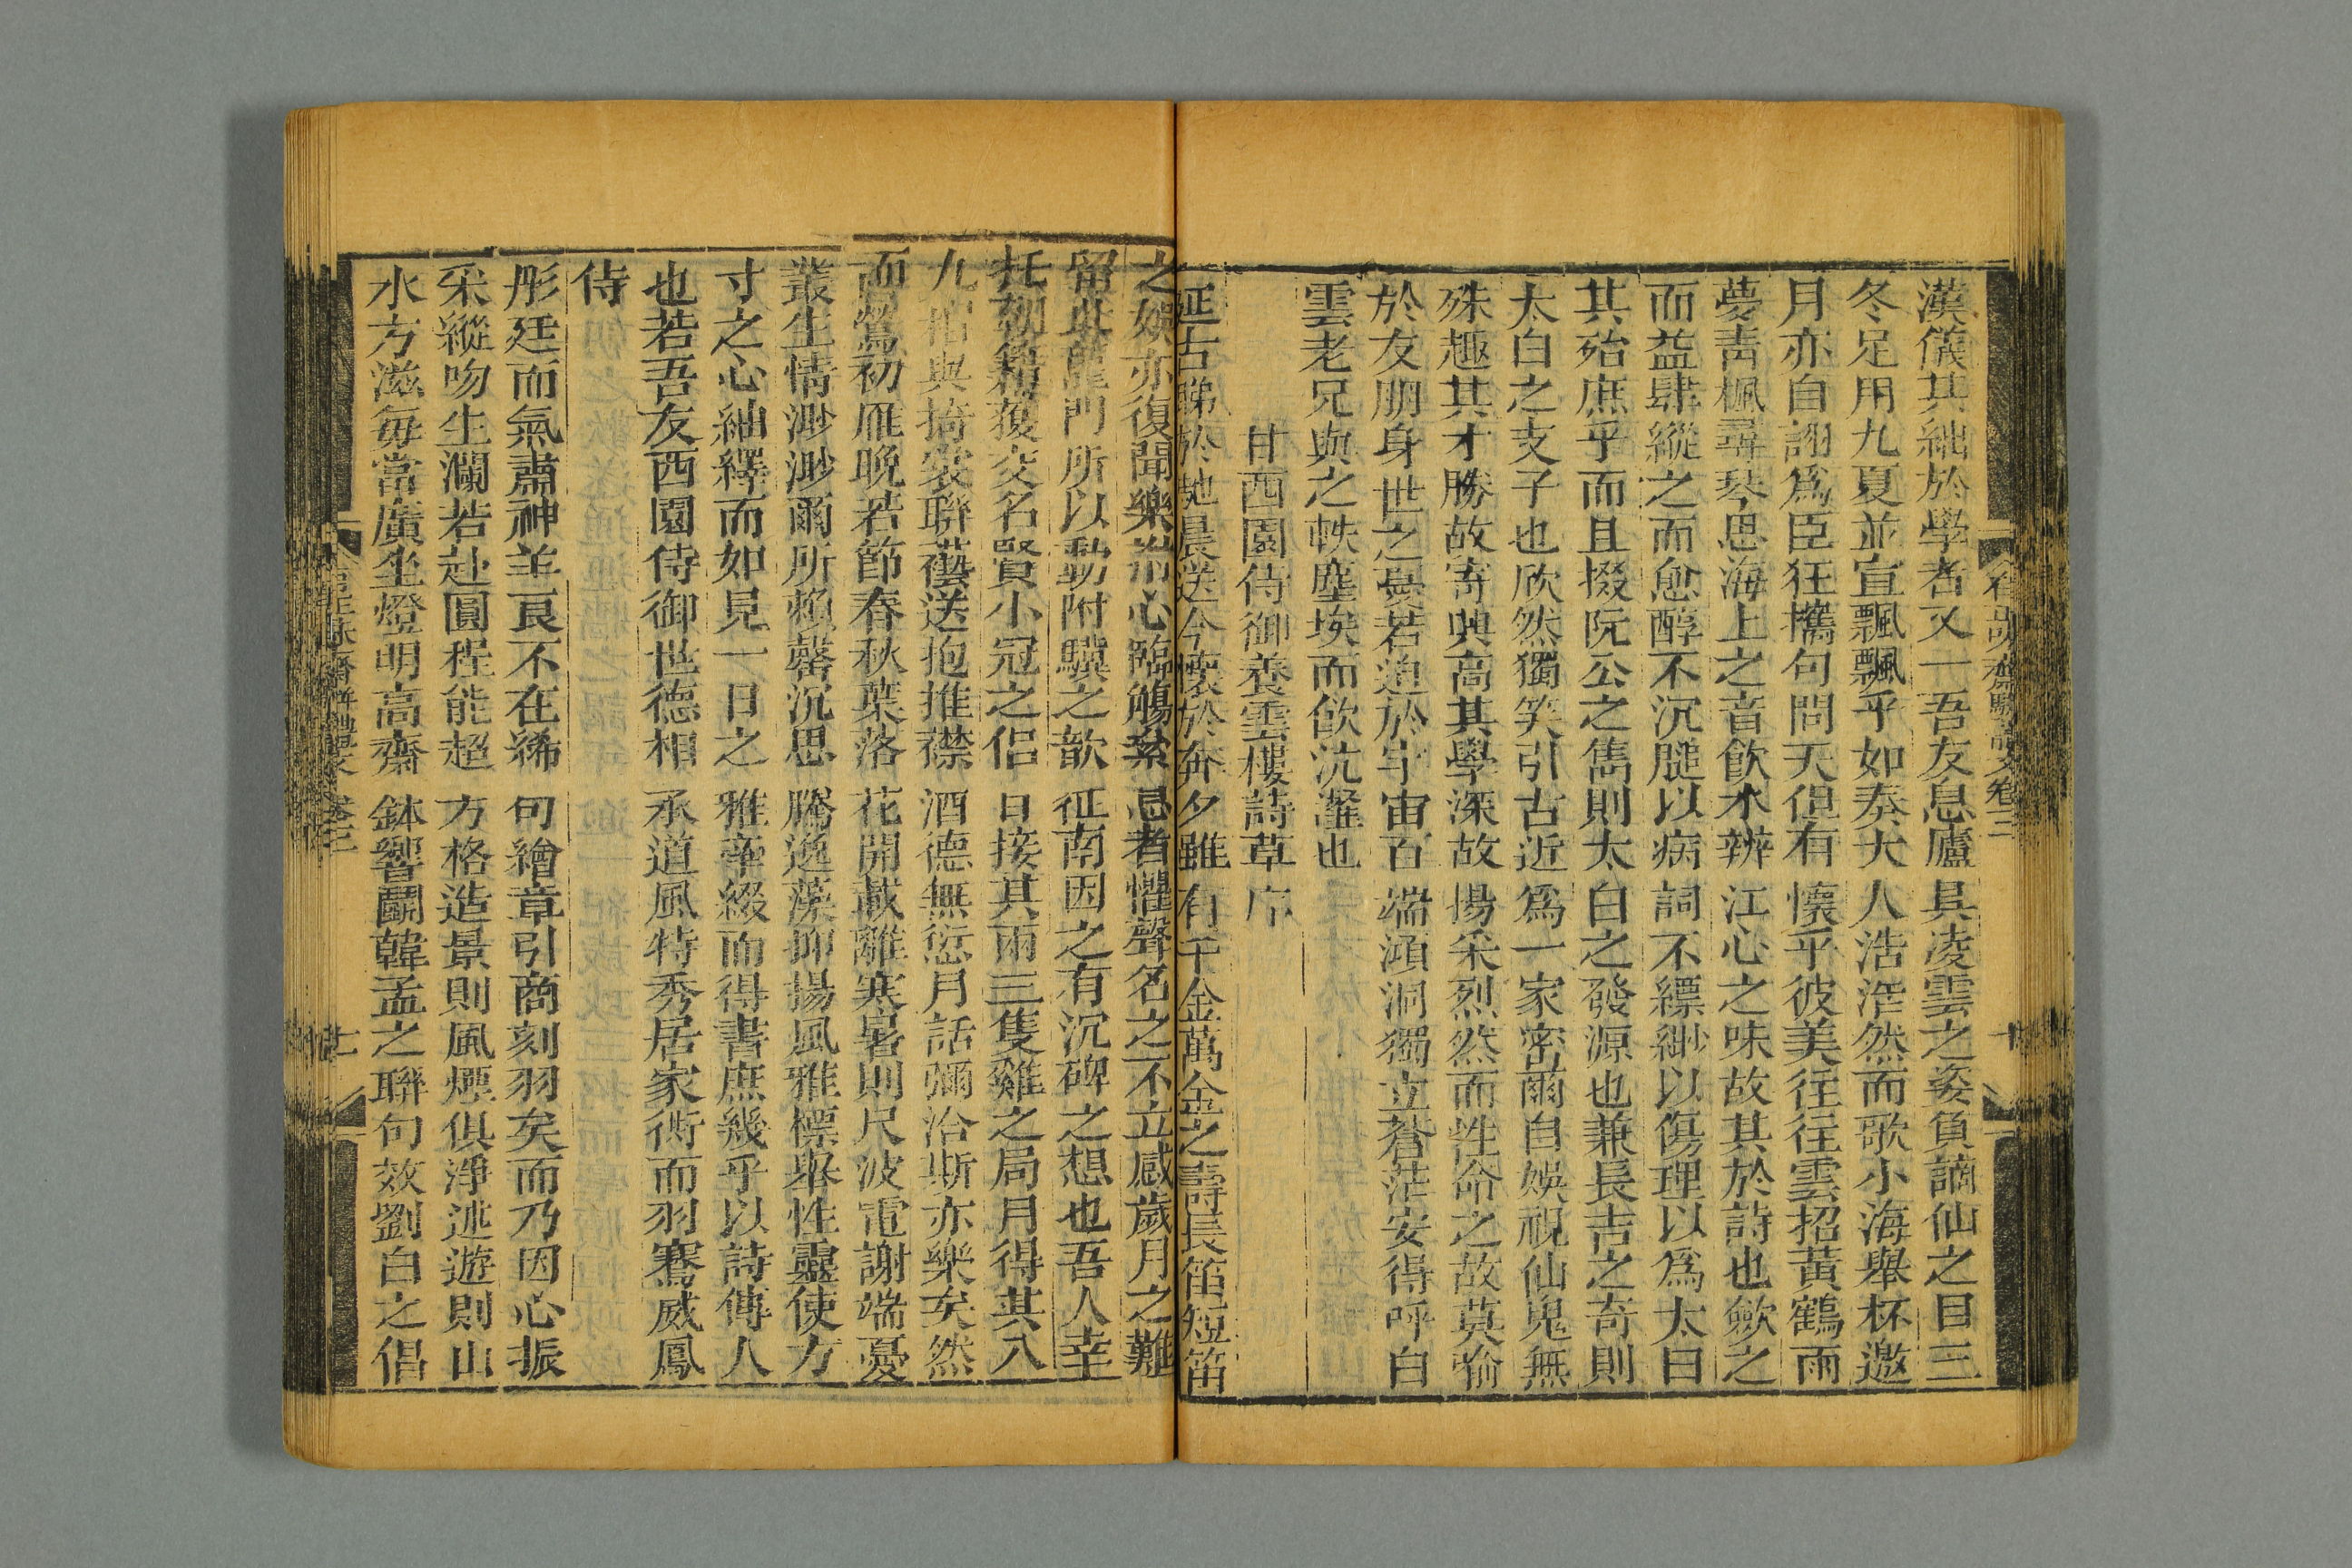 漢儀其絀於學者又一吾友息廬具凌雲之姿負謫仙之目三
冬足用九夏並宣飄飄乎如奏大人浩浩然而歌小海舉杯邀
月亦自詡爲臣狂攜句問天但有懷乎彼美往往雲招黃鶴雨
夢青楓尋琴思海上之音飲水辨江心之味故其於詩也斂之
而益肆縱之而愈醇不沉膇以病詞不縹緲以傷理以爲太白
其殆庶乎而且掇阮公之雋則太白之發源也兼長吉之奇則
太白之支子也欣然獨笑引古近爲一家密爾自娛視仙鬼無
殊趣其才勝故寄興高其學深故揚采烈然而性命之故莫喻
於友朋身世之憂若迫於宇宙百端澒洞獨立蒼茫安得呼白
雲老兄與之軼塵埃而飲沆瀣也
甘西園侍御養雲樓詩草序
延古睇於虵晨送今懷於奔夕雖有千金萬金之壽長笛短笛
之娛亦復聞樂 心臨觴 忌者懼聲名之不立感歲月之難
留此龍門所以動附驥之歆征南因之有沉碑之想也吾人幸
托朝籍獲交名賢小冠之侶日接其兩三隻雞之局月得其八
九 與掎裳聯藝送抱推襟酒德無愆月話彌洽斯亦樂矣然
而鶯初雁晚若節春秋葉落花開載離寒暑則尺波電謝端憂
叢生情渺渺爾所賴罄沉思騰逸藻抑揚風雅標舉性靈使方
寸之心紬繹而如見一日之雅牽綴而得書庶幾乎以詩傳人
也若吾友西園侍御世德相承道風特秀居家衖而羽騫威鳳
侍
彤廷而氣肅神羊良不在絺句繪章引商刻羽矣而乃因心振
采縱吻生瀾若赴圓程能超方格造景則風煙俱淨述遊則山
水方滋每當廣坐燈明高齋鉢響鬭韓孟之聯句效劉白之倡
卷三
十
卷三
十一